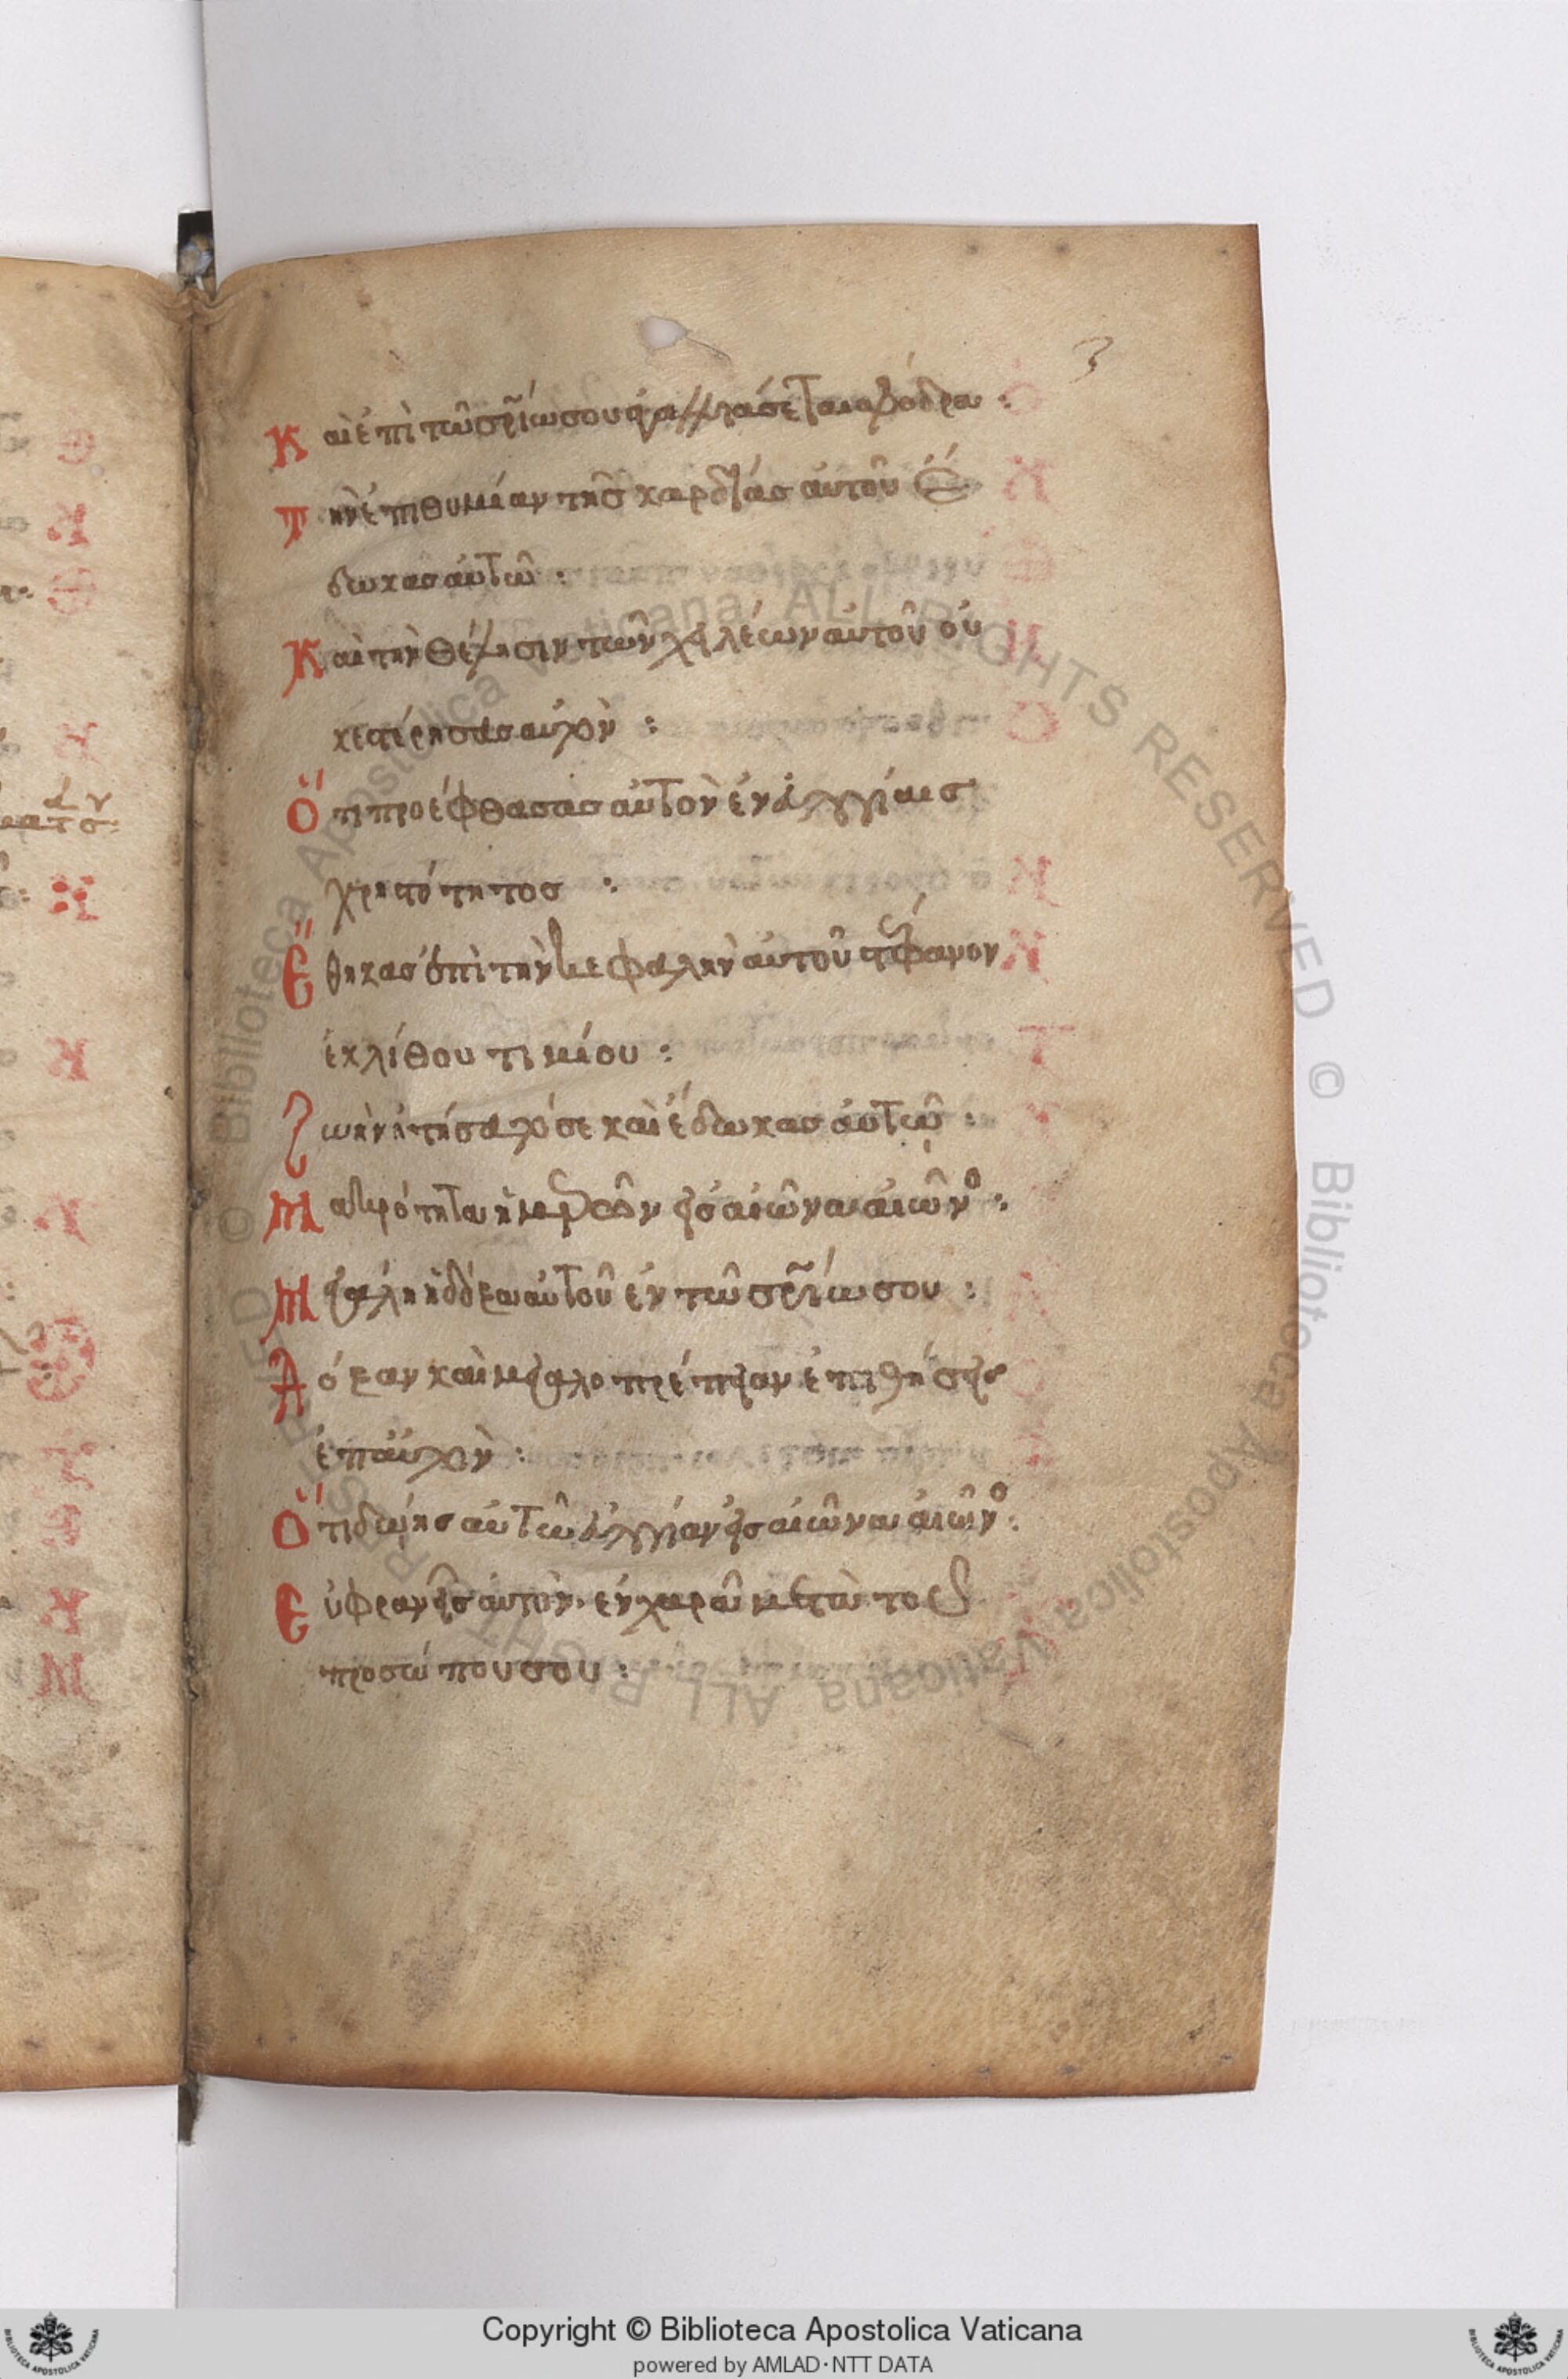 3
Καὶ ἐπὶ τῶ σρ̅ίω σου ἀγαλλιάσεται σφόδρα :
Τὴν ἐπιθυμίαν τῆς καρδίας αὐτοῦ ἔ
δωκας αὐτῶ :
Καὶ τὴν θέλησιν τῶν χειλέων αὐτοῦ οὐ
κ ἐστέρησας αὐτὸν :
Ὅτι προέφθασας αὐτὸν ἐν εὐλογίαις
χρηστότητος :
Ἔθηκας ἐπὶ τὴν κεφαλὴν αὐτοῦ στέφανον
ἐκ λίθου τιμίου :
Ζωὴν ἠτήσατό σε καὶ ἔδωκας αὐτῶ :
Μακρότητα ἡμερῶν εἰς αἰῶνα αἰῶνο :
Μεγάλη ἡ δόξα αὐτοῦ ἐν τῶ σρ̅ίω σου :
Δόξαν καὶ μεγαλοπρέπειαν ἐπιθήσεις
ἐπ αὐτὸν :
Ὅτι δώσεις αὐτῶ εὐλογίαν εἰς αἰῶνα αἰῶνο :
Εὐφρανεῖς αὐτὸν ἐν χαρᾶ μετὰ τοῦ
προσώπου σου :
Copyright © Biblioteca Apostolica Vaticana
powered by AMLAD·NTT DATA